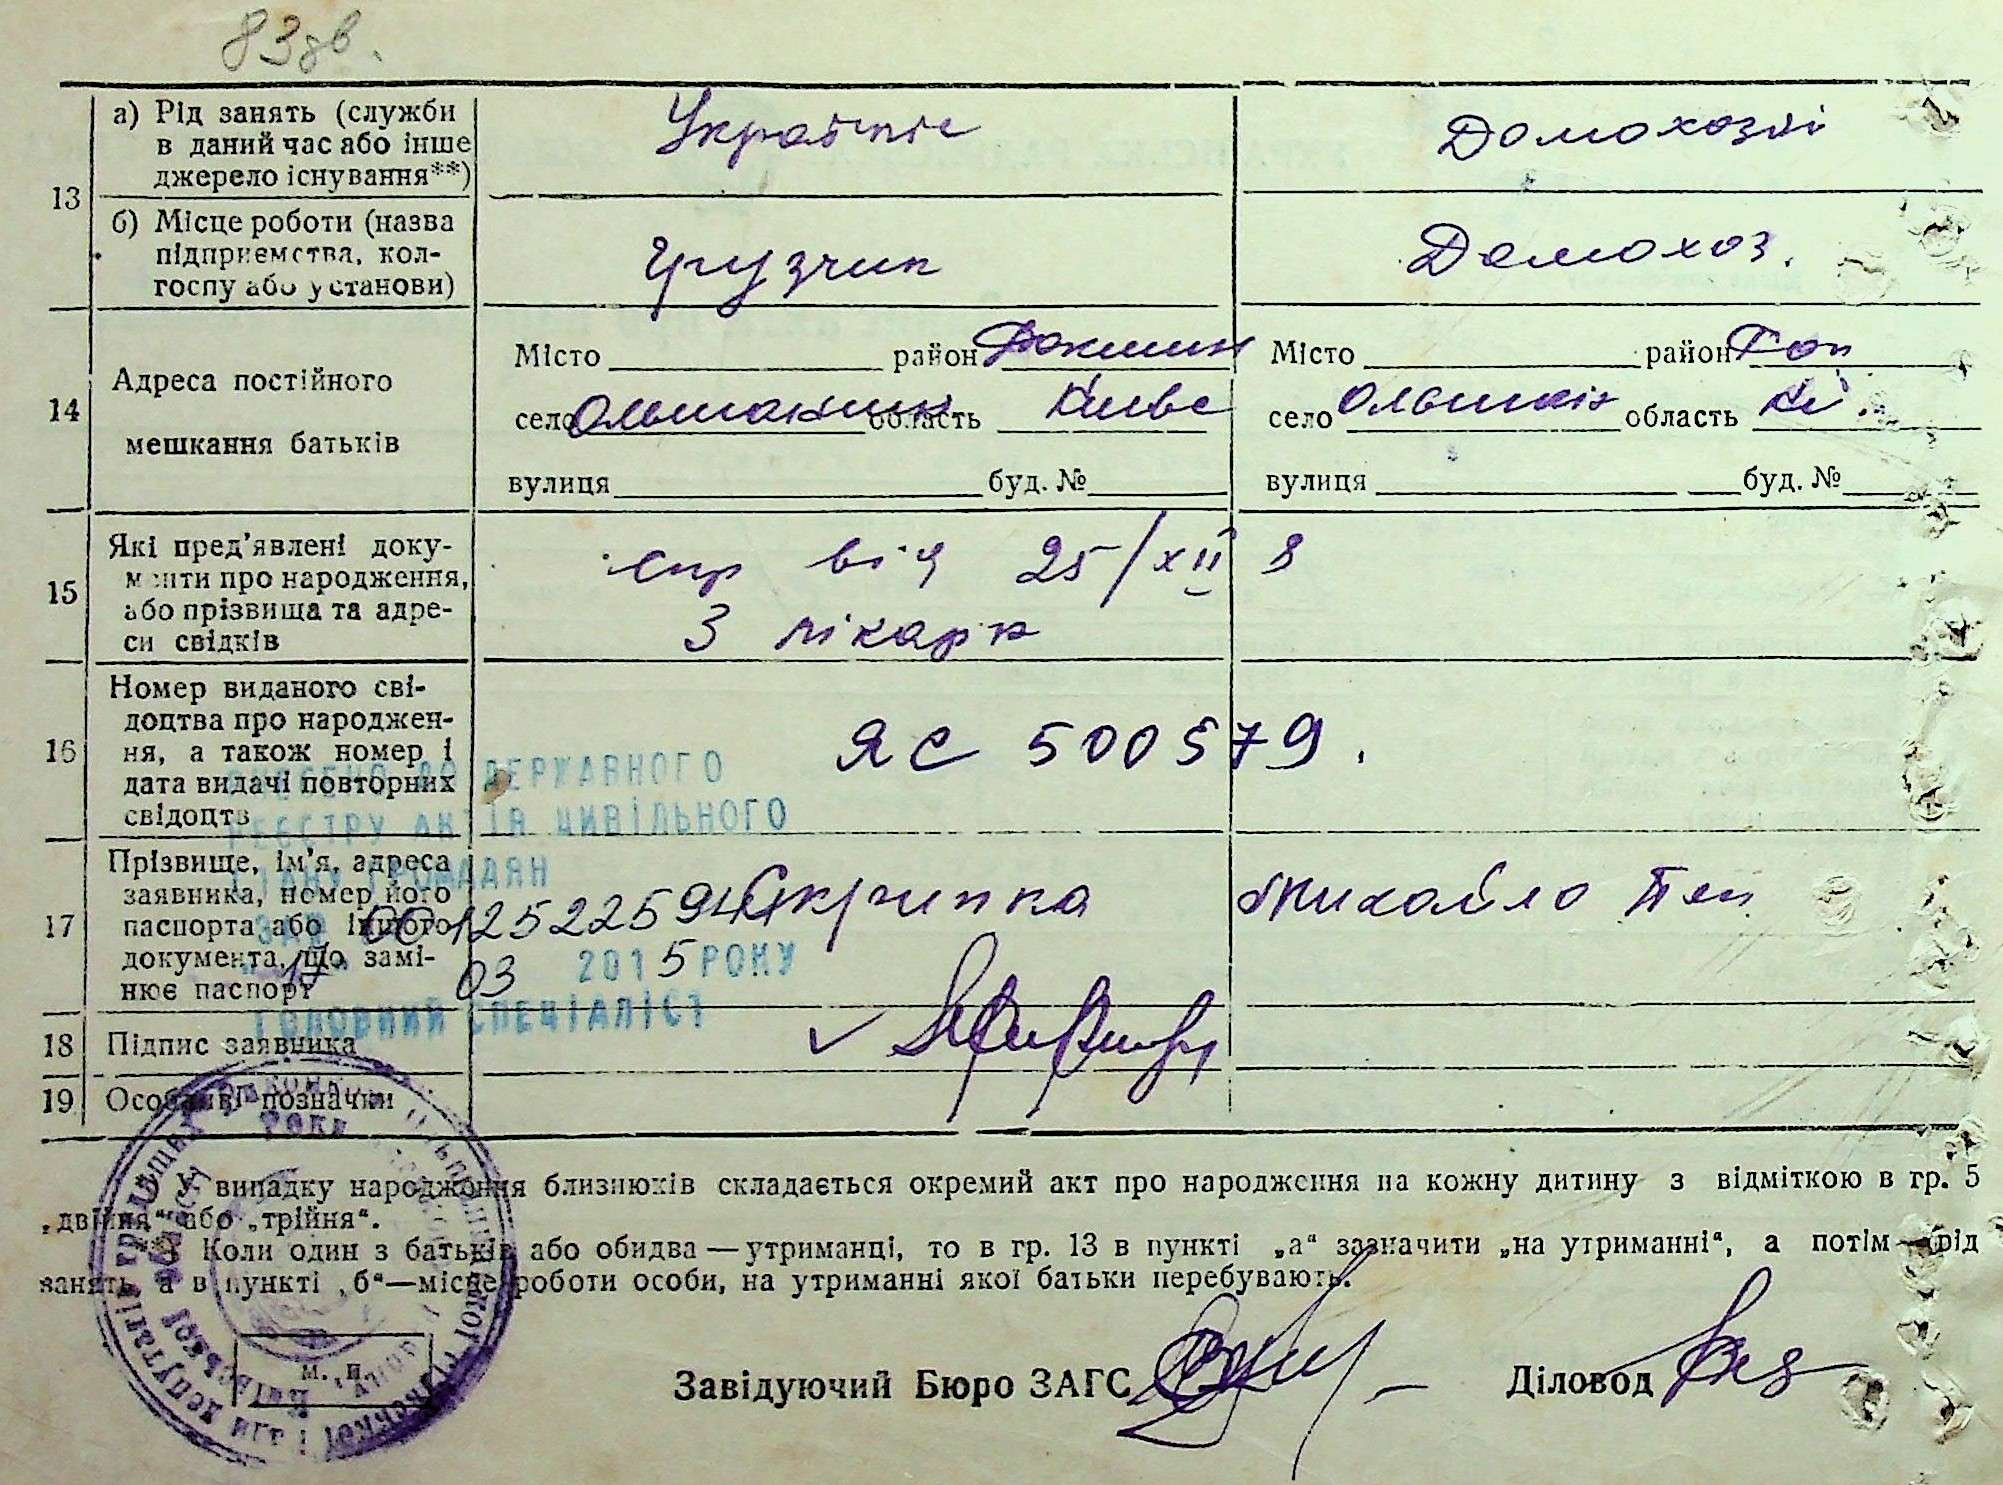 83зв.
13
а) Рід занять (служби
в даний час або інше
джерело існування**)
Домохозяй
б) Місце роботи (назва
підприємства, кол-
госпу або установи)
Грузчик
Домохоз.
14
Адреса постійного
мешкання батьків
Місто район
село область Київс
вулиця буд. №
Місто район
село область Ки.
вулиця буд. №
15
Які пред'явлені доку-
менти про народження,
або прізвища та адре-
си свідків
спр від 25/XII 8
З лікарн
16
Номер виданого сві-
доцтва про народжен-
ня, а також номер і
дата видачі повторних
свідоцтв
ЯС 500579.
ВНЕСЕНО ДО ДЕРЖАВНОГО
РЕЄСТРУ АКТІВ ЦИВІЛЬНОГО
СТАНУ ГРОМАДЯН
17
Прізвище, ім'я, адреса
заявника, номер його
паспорта або іншого
документа, що замі-
нює паспорт
Скрипка Михайло
17 03 2015 РОКУ
ГОЛОВНИЙ СПЕЦІАЛІСТ
18
Підпис заявника
19
Особливі позначки
*) У випадку народження близнюків складається окремий акт про народження на кожну дитину з відміткою в гр. 5
„двійня“ або „трійня“.
**) Коли один з батьків або обидва — утриманці, то в гр. 13 в пункті „а“ зазначити „на утриманні“, а потім — рід
занять, а в пункті „б“ — місце роботи особи, на утриманні якої батьки перебувають.
М. П.
Завідуючий Бюро ЗАГС
Діловод